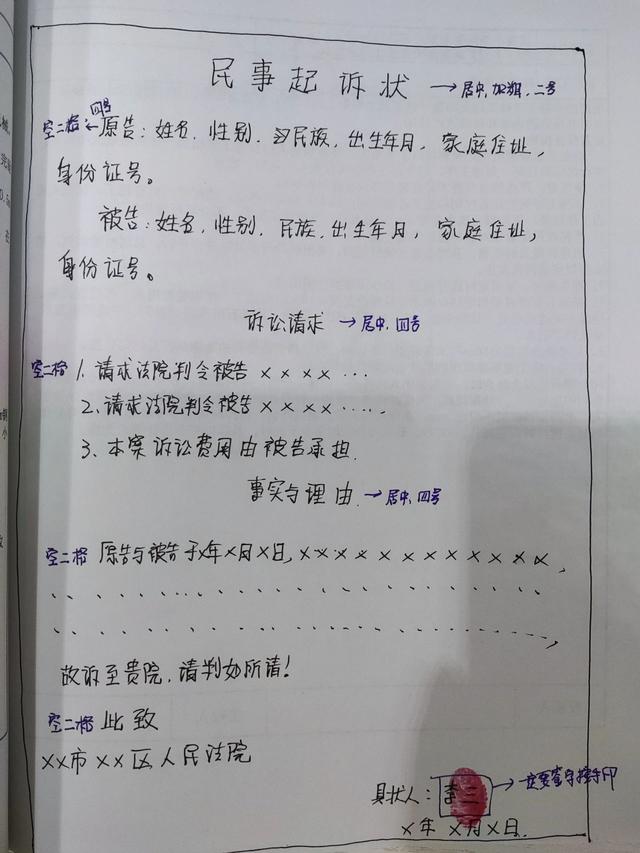 民事起诉状 → 居中,加粗,二号
四号
空二格 原告:姓名,性别,民族,出生年月,家庭住址,
身份证号。
被告:姓名,性别,民族,出生年月,家庭住址,
身份证号。
诉讼请求 → 居中,四号
空二格 1、请求法院判令被告××××···
2、请求法院判令被告××××·····
3、本案诉讼费用由被告承担.
事实与理由 → 居中,四号
空二格 原告与被告于×年×月×日,×××××××××××××,
故诉至贵院,请判如所请!
空二格 此致
××市××区人民法院
具状人:李三 → 一定要签字按手印
×年 ×月×日.